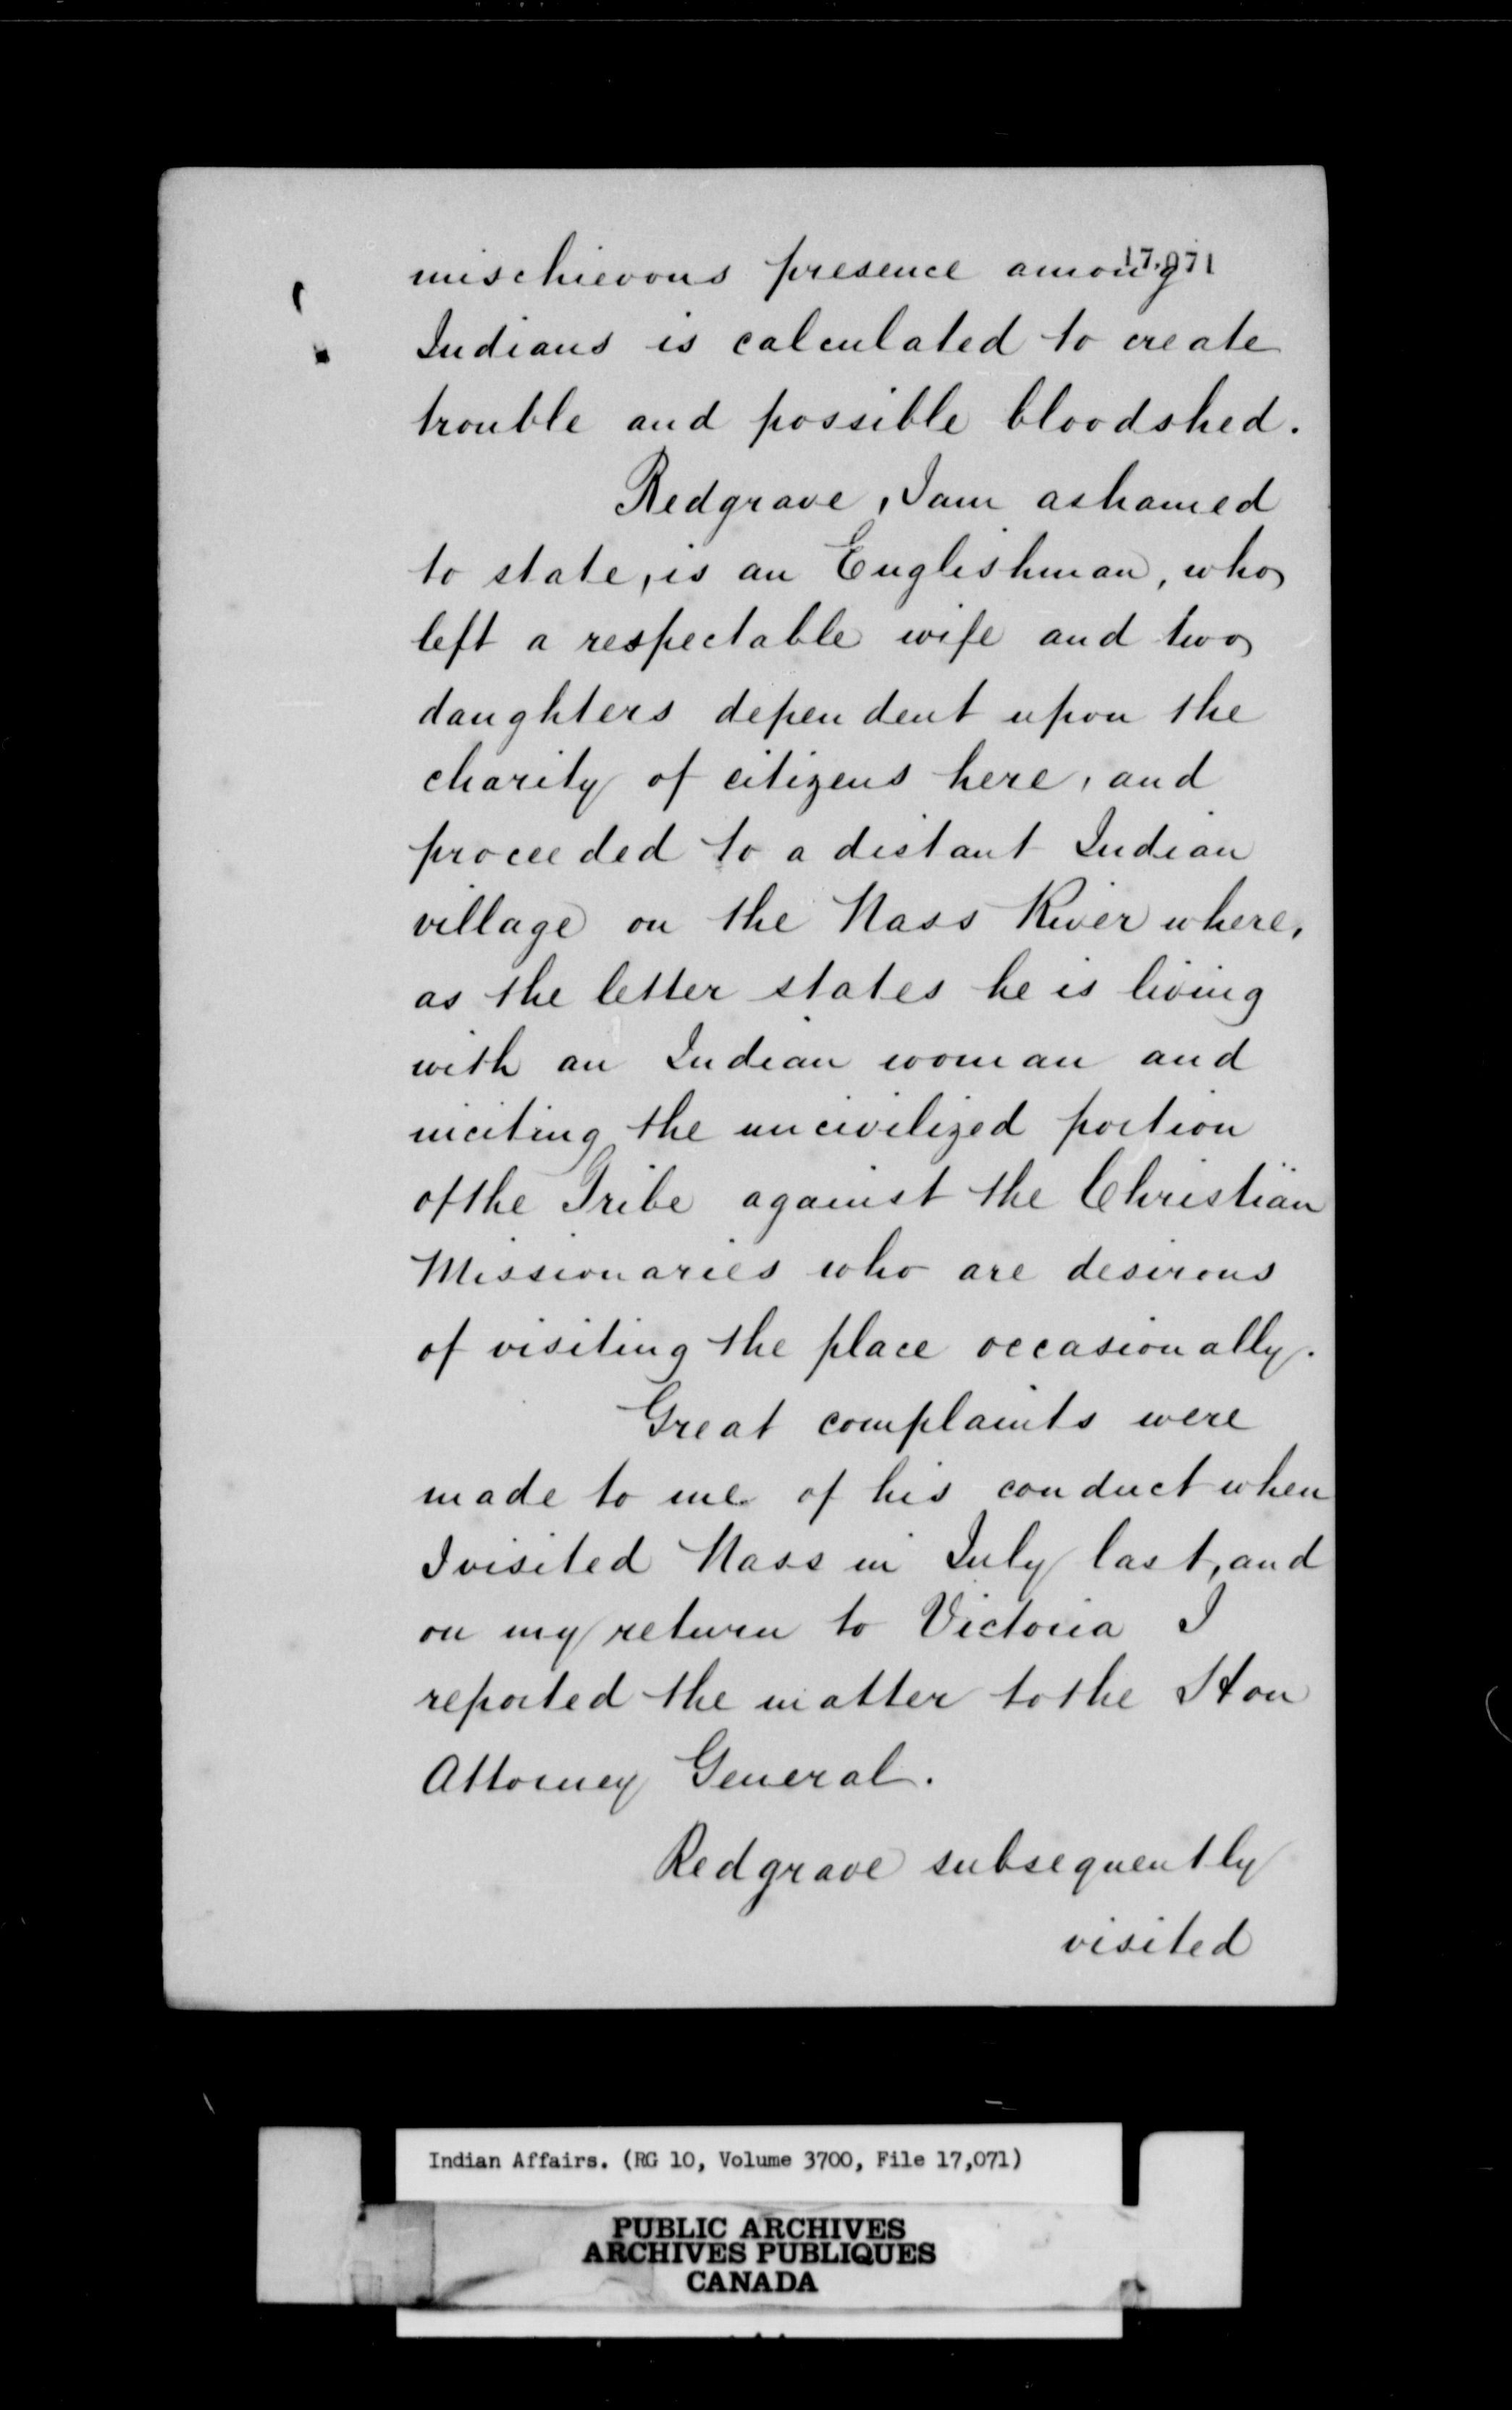 17,071
mischievous presence among
Indians is calculated to create
trouble and possible bloodshed.
Redgrave, I am ashamed
to state, is an Englishman, who
left a respectable wife and two
daughters dependent upon the
charity of citizens here, and
proceeded to a distant Indian
village on the Nass River where,
as the letter states he is living
with an Indian woman and
inciting the uncivilized portion
of the Tribe against the Christian
Missionaries who are desirous
of visiting the place occasionally.
Great complaints were
made to me of his conduct when
I visited Nass in July last, and
on my return to Victoria I
reported the matter to the Hon
Attorney General.
Redgrave subsequently
visited
Indian Affairs. (RG 10, Volume 3700, File 17,071)
PUBLIC ARCHIVES
ARCHIVES PUBLIQUES
CANADA